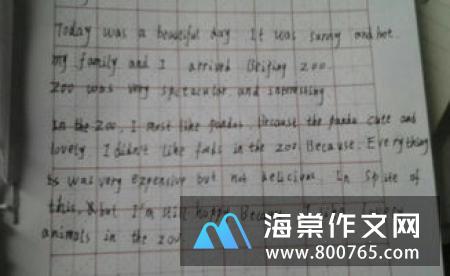 Today was a beautiful day It was sunny and hot.
my family and I arrived Beijing zoo.
Zoo was very spectacular and interesting
In the zoo, I most like pandas. Because the panda cute and
lovely. I didn't like foods in the zoo. Because. Everything
was very expensive but not delicious. In spite of
this, but I'm still happy Because
animals in the zoo
海棠作文网
www.800765.com